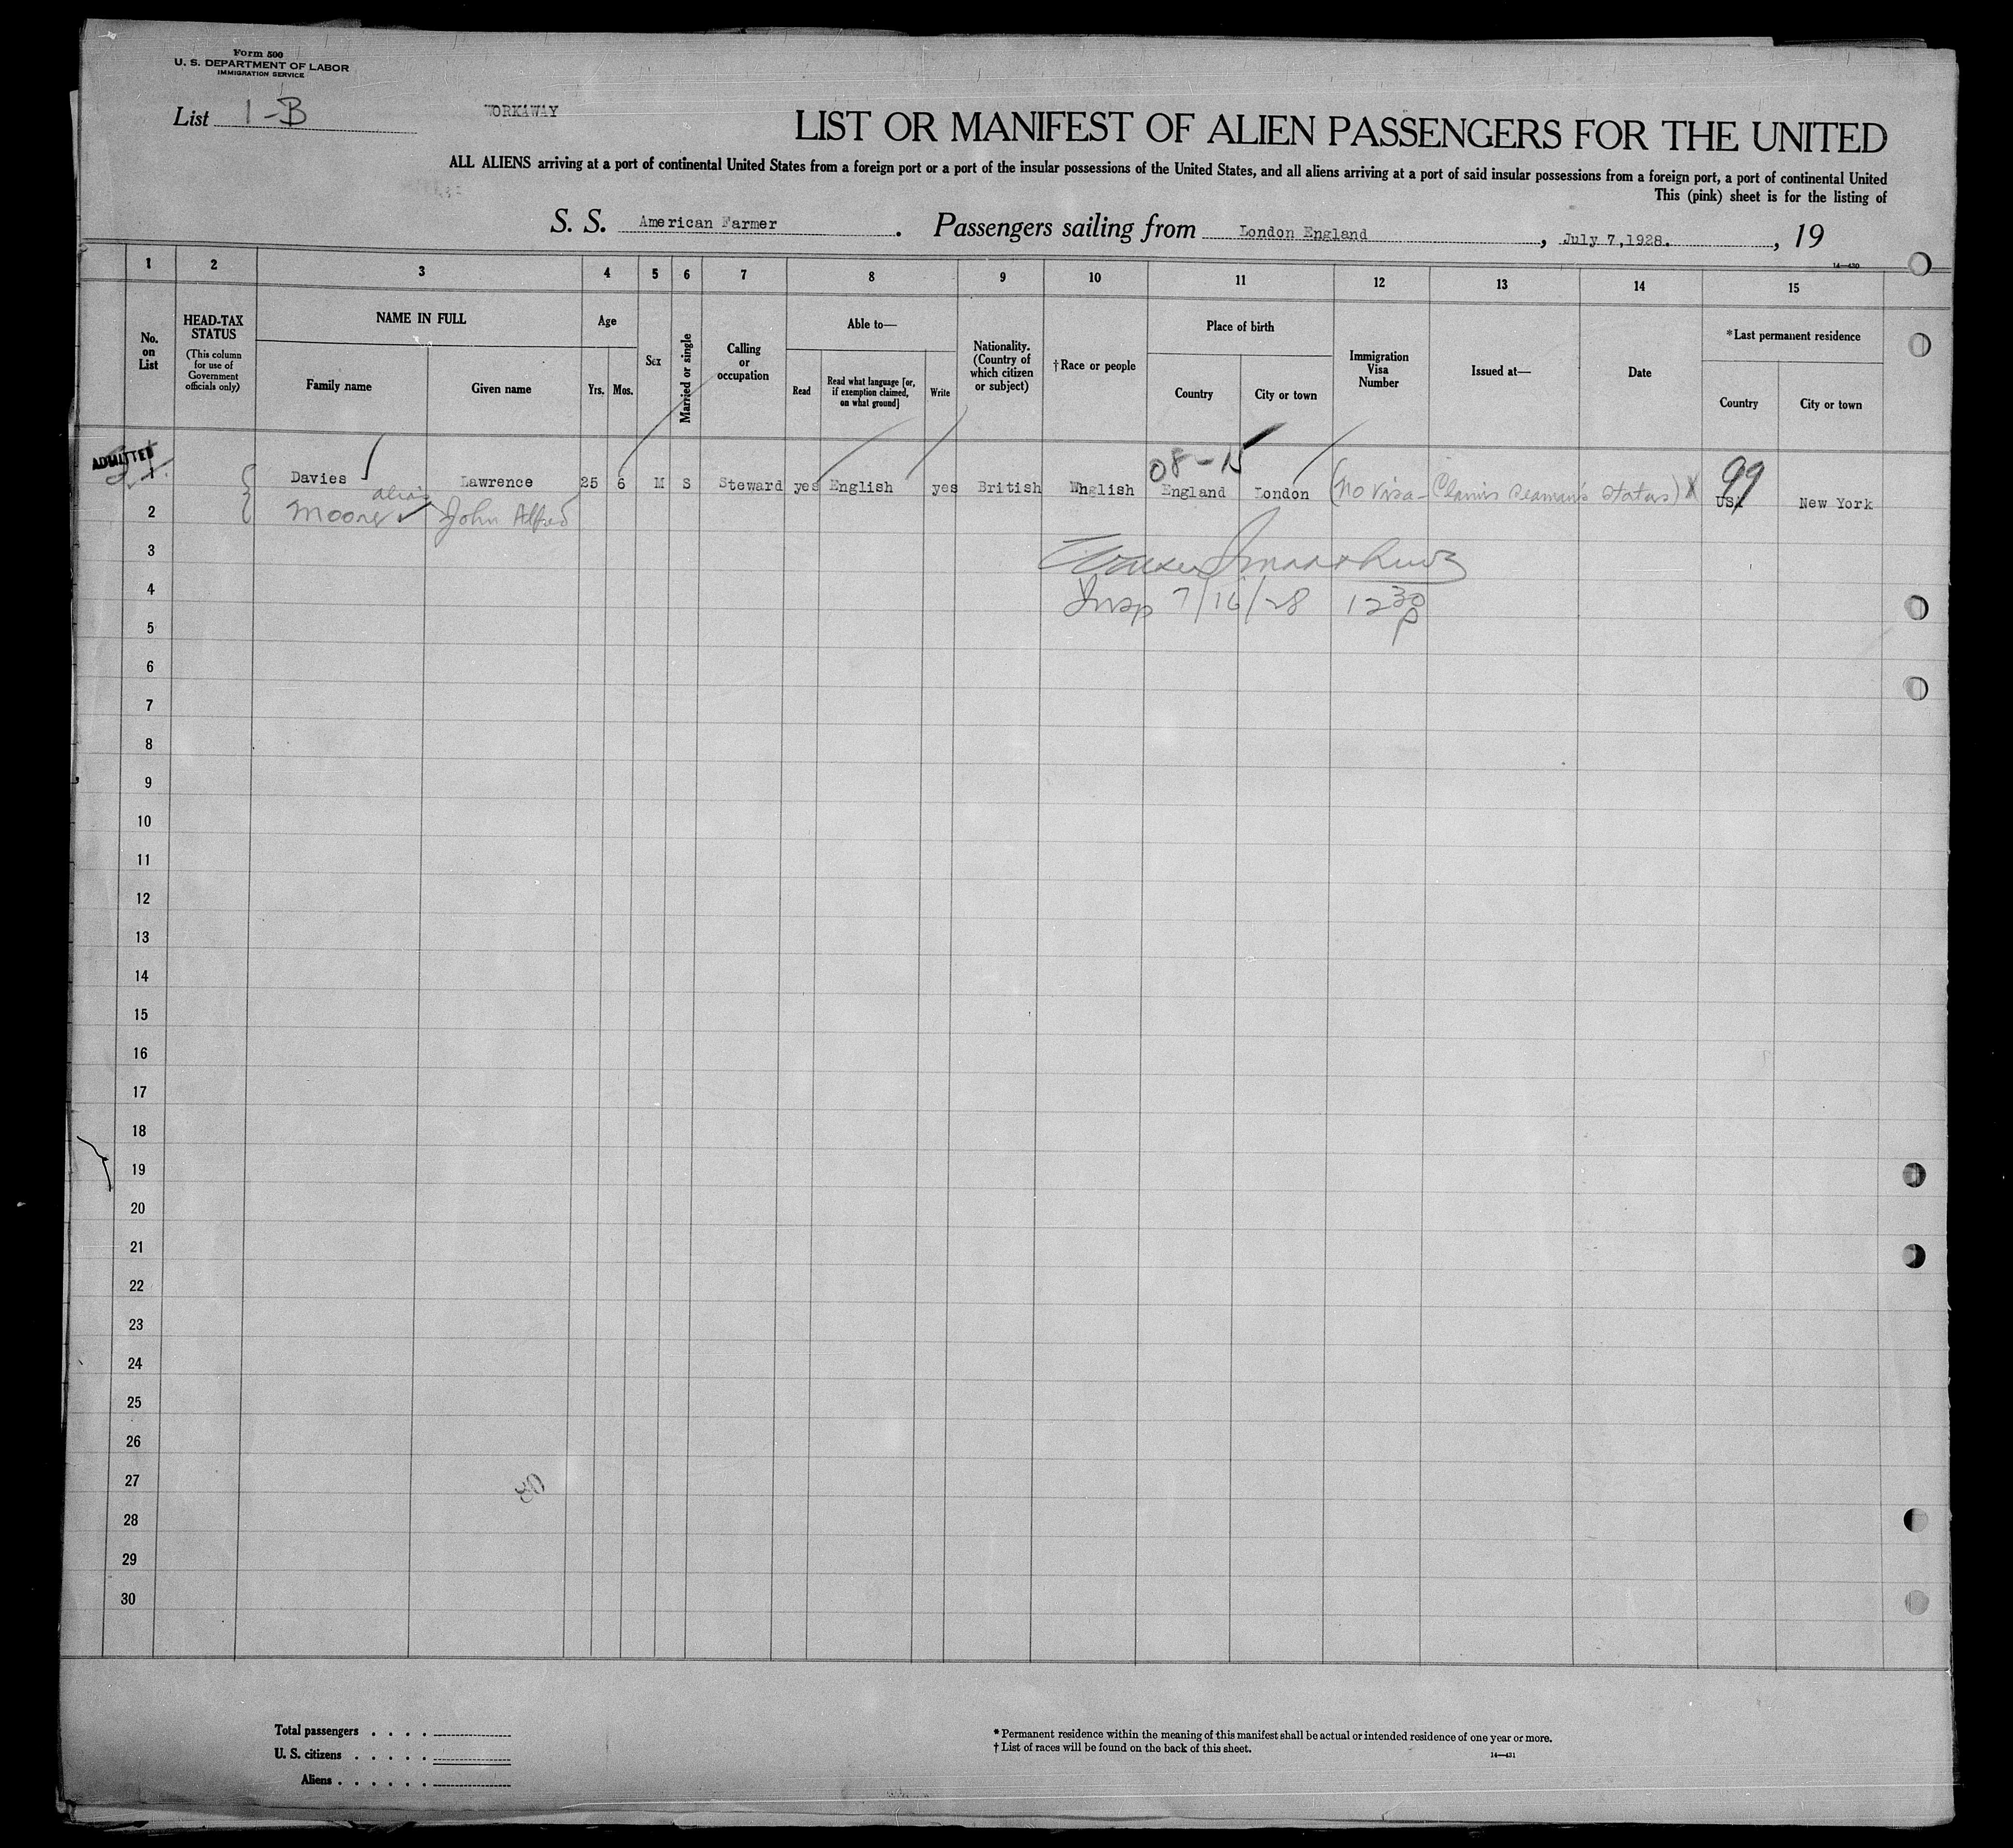 Form 500
U. S. DEPARTMENT OF LABOR
IMMIGRATION SERVICE
List 1-B
WORKAWAY
LIST OR MANIFEST OF ALIEN PASSENGERS FOR THE UNITED
ALL ALIENS arriving at a port of continental United States from a foreign port or a port of the insular possessions of the United States, and all aliens arriving at a port of said insular possessions from a foreign port, a port of continental United
This (pink) sheet is for the listing of
S. S. American Farmer. Passengers sailing from London England, July 7,1928., 19
14—430
1 2 3 4 5 6 7 8 9 10 11 12 13 14 15
No. on List
HEAD-TAX STATUS
(This column for use of Government officials only)
NAME IN FULL
Family name
Given name
Age
Yrs.
Mos.
Sex
Married or single
Calling or occupation
Able to—
Read
Read what language [or, if exemption claimed, on what ground]
Write
Nationality. (Country of which citizen or subject)
†Race or people
Place of birth
Country
City or town
Immigration Visa Number
Issued at—
Date
*Last permanent residence
Country
City or town
ADMITTED
08-15
99
1 Davies Lawrence 25 6 M S Steward yes English yes British English England London (no visa - Claims seaman's status) X USA New York
alias
2 Moore John Alfred
3
4 Insp 7/16/28 12 30 p
5
6
7
8
9
10
11
12
13
14
15
16
17
18
19
20
21
22
23
24
25
26
27
28
29
30
Total passengers . . . .
U. S. citizens . . . . .
Aliens . . . . . .
* Permanent residence within the meaning of this manifest shall be actual or intended residence of one year or more.
† List of races will be found on the back of this sheet.
14—431